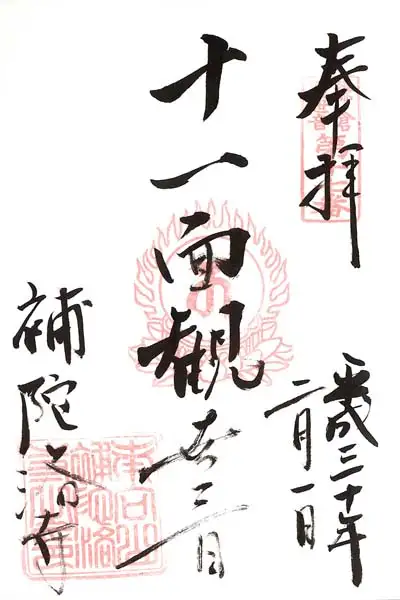 奉拝
平成三十年
二月一日
十一面観世音
補陀洛寺